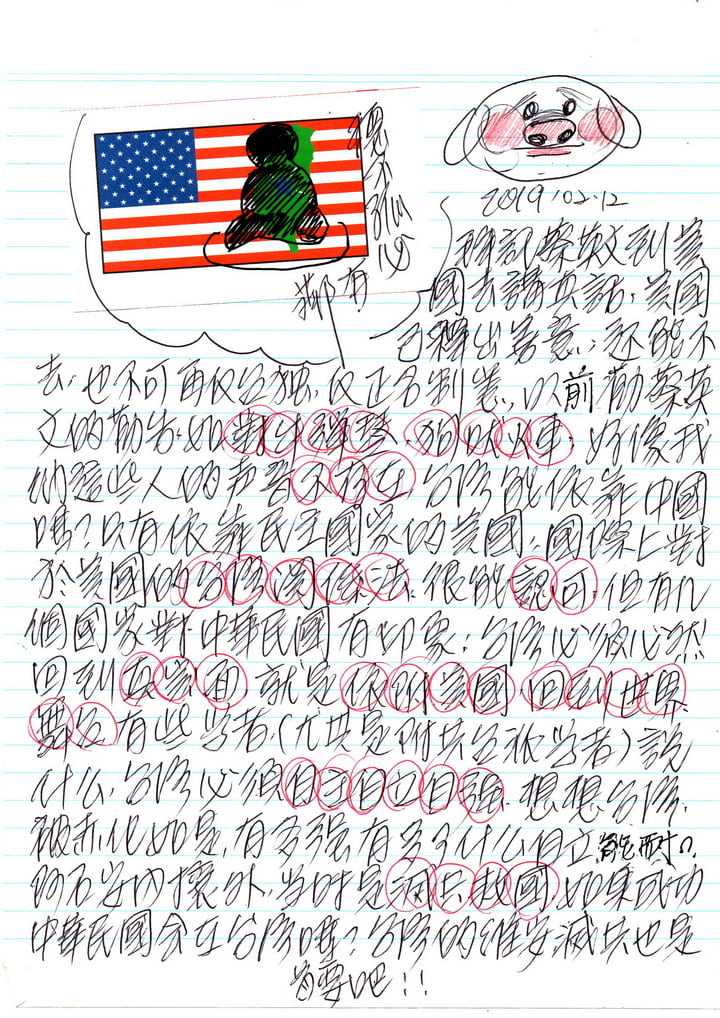 德不孤必
鄰有
2019.02.12
蔡英文到美
國去講,美國
已釋出善意,還能不
去,也不可再仅台独,仅正名制憲,以前勸蔡英
文的勸告,如對牛弹琴,狗吠火車,好像我
們這些人的声音不存在,台灣能依靠中國
嗎?只有依靠民主國家的美國,國際上對
於美國的台灣関係法,很能認可,但有几
個國家對中華民國有印象;台灣必須必然
回到真实面,就是依附美國,回到世界
舞台,有些学者(尤其是附共台派学者)說
什么,台灣必須自主自立自强,想想台灣,
被赤化如是,有多强有多少什么自立能耐?
何不安內攘外,当时是滅共救國,如果成功
中華民國会在台灣嗎?台灣的維安,滅共也是
首要吧!!